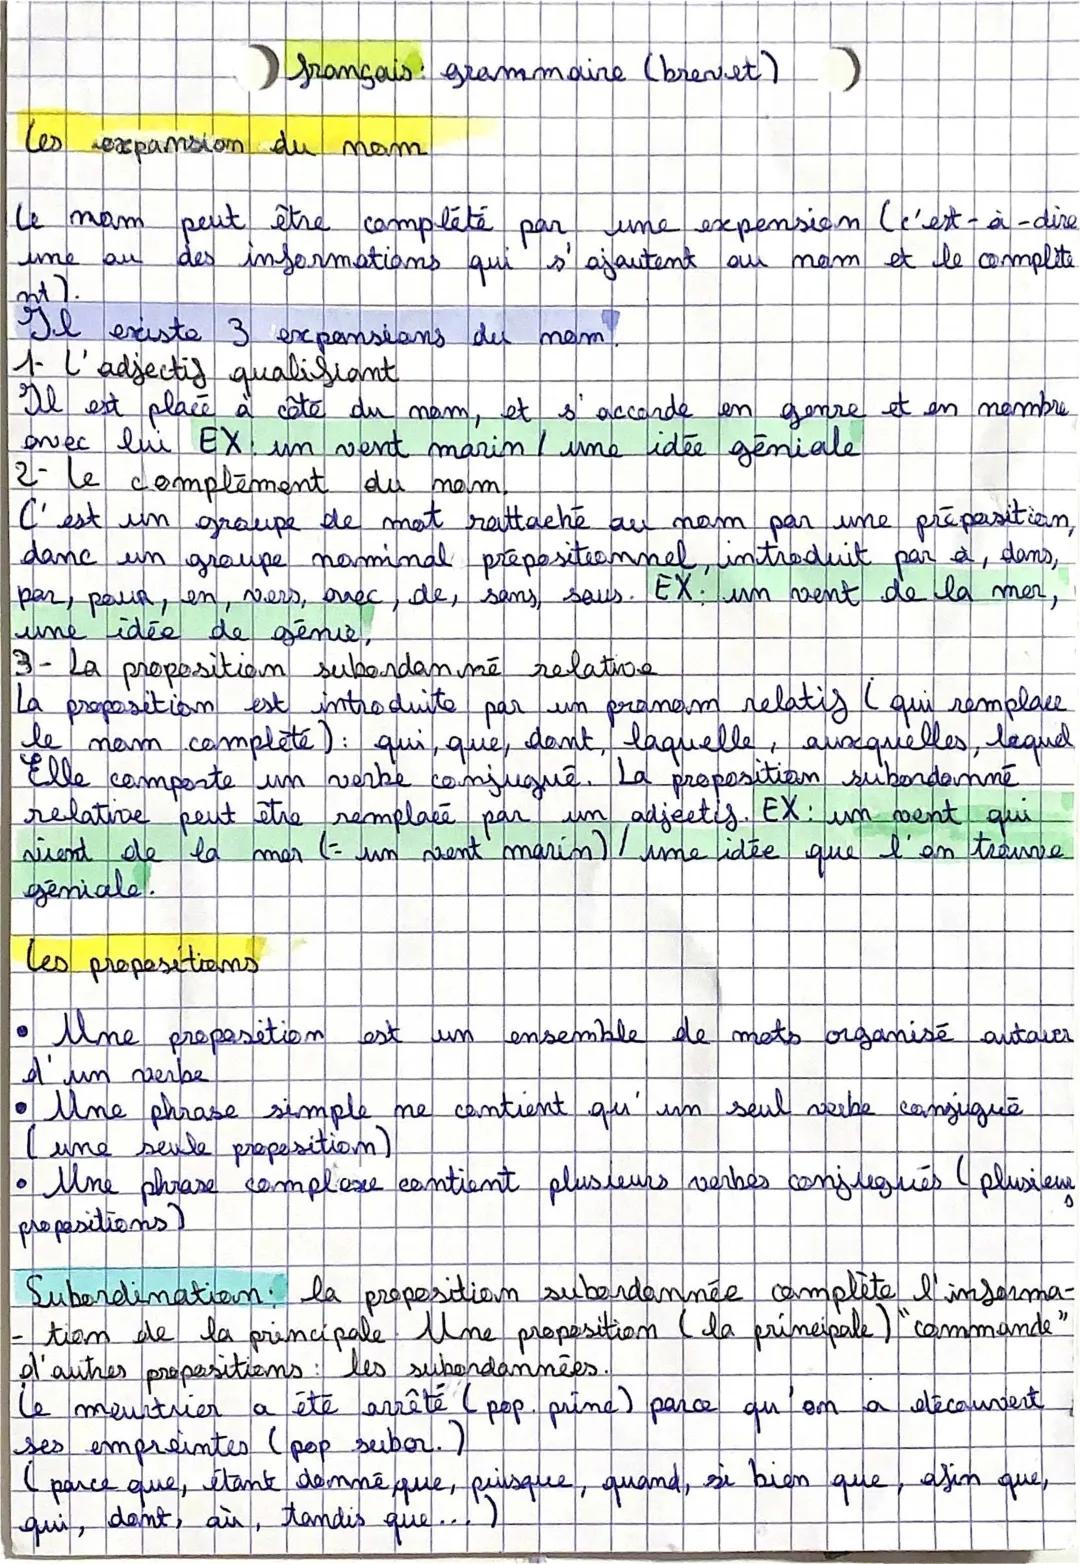 français : grammaire (brevet)
Les expansion du nom
Le nom peut être complété par une expension (c'est-à-dire
une ou des informations qui s'ajoutent au nom et le complète
nt).
Il existe 3 expansions du nom :
1- L'adjectif qualifiant
Il est placé à côté du nom, et s'accorde en genre et en nombre
avec lui EX : un vent marin / une idée géniale
2- Le complément du nom.
C'est un groupe de mot rattaché au nom par une préposition,
donc un groupe nominal prépositionnel, introduit par à, dans,
par, pour, en, vers, avec, de, sans, sous. EX : un vent de la mer,
une idée de génie,
3- La proposition subordonné relative
La proposition est introduite par un pronom relatif (qui remplace
le nom complété) : qui, que, dont, laquelle, auxquelles, lequel
Elle comporte un verbe conjugué. La proposition subordonné
relative peut être remplacé par un adjectif. EX : un vent qui
vient de la mer (= un vent marin) / une idée que l'on trouve
géniale.
Les propositions
• Une proposition est un ensemble de mots organisé autour
d'un verbe
• Une phrase simple ne contient qu'un seul verbe conjugué
(une seule proposition)
• Une phrase complexe contient plusieurs verbes conjugués (plusieurs
propositions)
Subordination : la proposition subordonnée complète l'informa-
- tion de la principale. Une proposition (la principale) "commande"
d'autres propositions : les subordonnées.
Le meurtrier a été arrêté (pop. princ) parce qu'on a découvert
ses empreintes (pop subor.)
(parce que, étant donné que, puisque, quand, si bien que, afin que,
qui, dont, où, tandis que...)